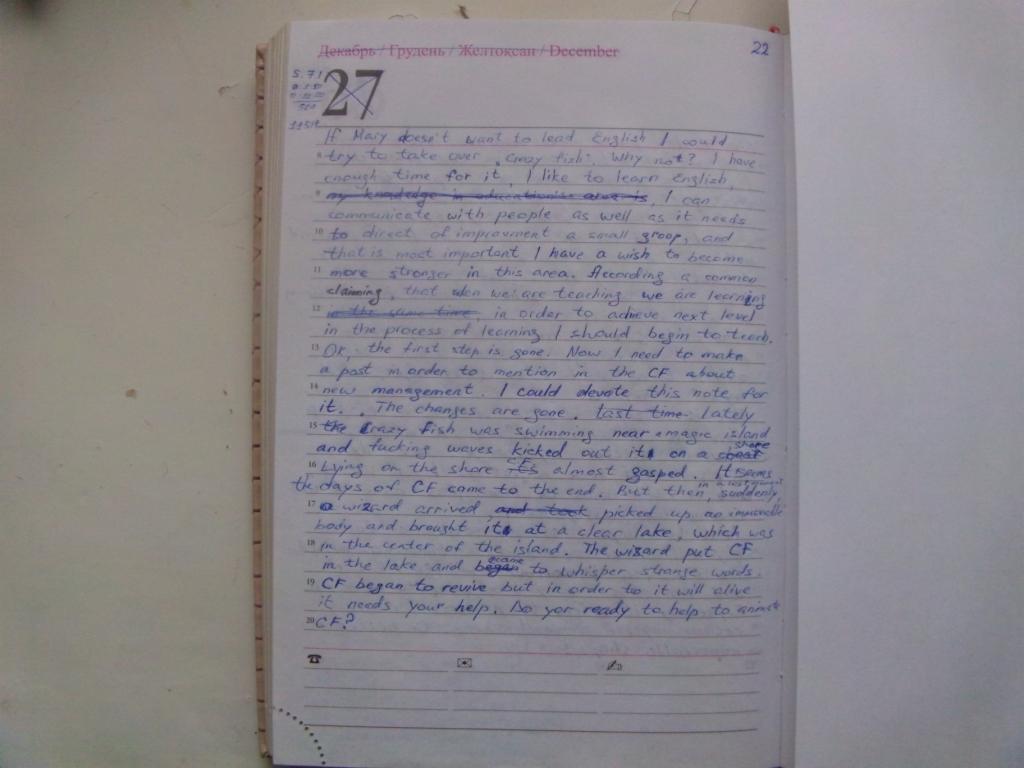 22
Декабрь / Грудень / Желтоқсан / December
27
If Mary doesn't want to lead English I could
try to take over „Crazy fish". Why not? I have
enough time for it, I like to learn English,
my knowledge in area is, I can
communicate with people as well as it needs
10 to direct of impraument a small groop, and
that is most important I have a wish to become
11 more stronger in this area. According a common
claiming, that when we are teaching we are learning
12 in the same time in order to achieve next level
in the process of learning I should begin to teach.
13 Ok, the first step is gone. Now I need to make
a post in order to mention in the CF about
14 new management. I could devote this note for
it. The changes are gone. last time lately
15 the Crazy fish was swimming near a magic island
and fucking waves kicked out it on a shore
16 Lying on the shore CF almost gasped. It seems
the days of CF came to the end. But then, in a last moment suddenly,
17 a wizard arrived and took picked up an immovable
body and brought it at a clear lake, which was
18 in the center of the island. The wizard put CF
in the lake and began to whisper strange words.
19 CF began to revive but in order to it will alive
it needs your help. Do yor ready to help to animate
20 CF?